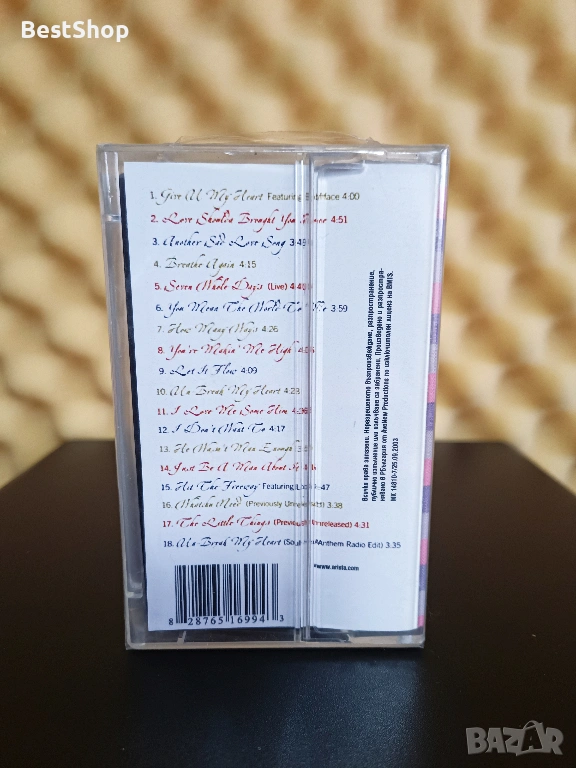 BestShop
1. Give U My Heart Featuring 4:00
2. Love Shoulda Brought You Home 4:51
3. Another Sad Love Song 3:49
4. Breathe Again 4:15
5. Seven Whole Days (Live)
6. You Mean The World To Me 3:59
7. How Many Ways 4:26
8. You're Makin' Me High
9. Let It Flow 4:09
10. Un-Break My Heart 4:23
11. I Love Me Some Him
12. I Don't Want To 4:17
13. He Wasn't Man Enough
14. Just Be A Man About It
15. Hit The Freeway Featuring
16. Whatcha Need (Previously Unreleased) 3:38
17. The Little Things (Previously Unreleased) 4:31
18. Un-Break My Heart Anthem Radio Edit) 3:35
www.arista.com
8 28765 16994 3
Всички права запазени. Неразрешеното възпроизвеждане, разпространение,
публично изпълнение или излъчване са забранени. Произведено и разпростра-
нявано в РБългария от АveNew Productions по изключителен лиценз на BMIS.
МК 14810-7/25.09.2003
BAZAR